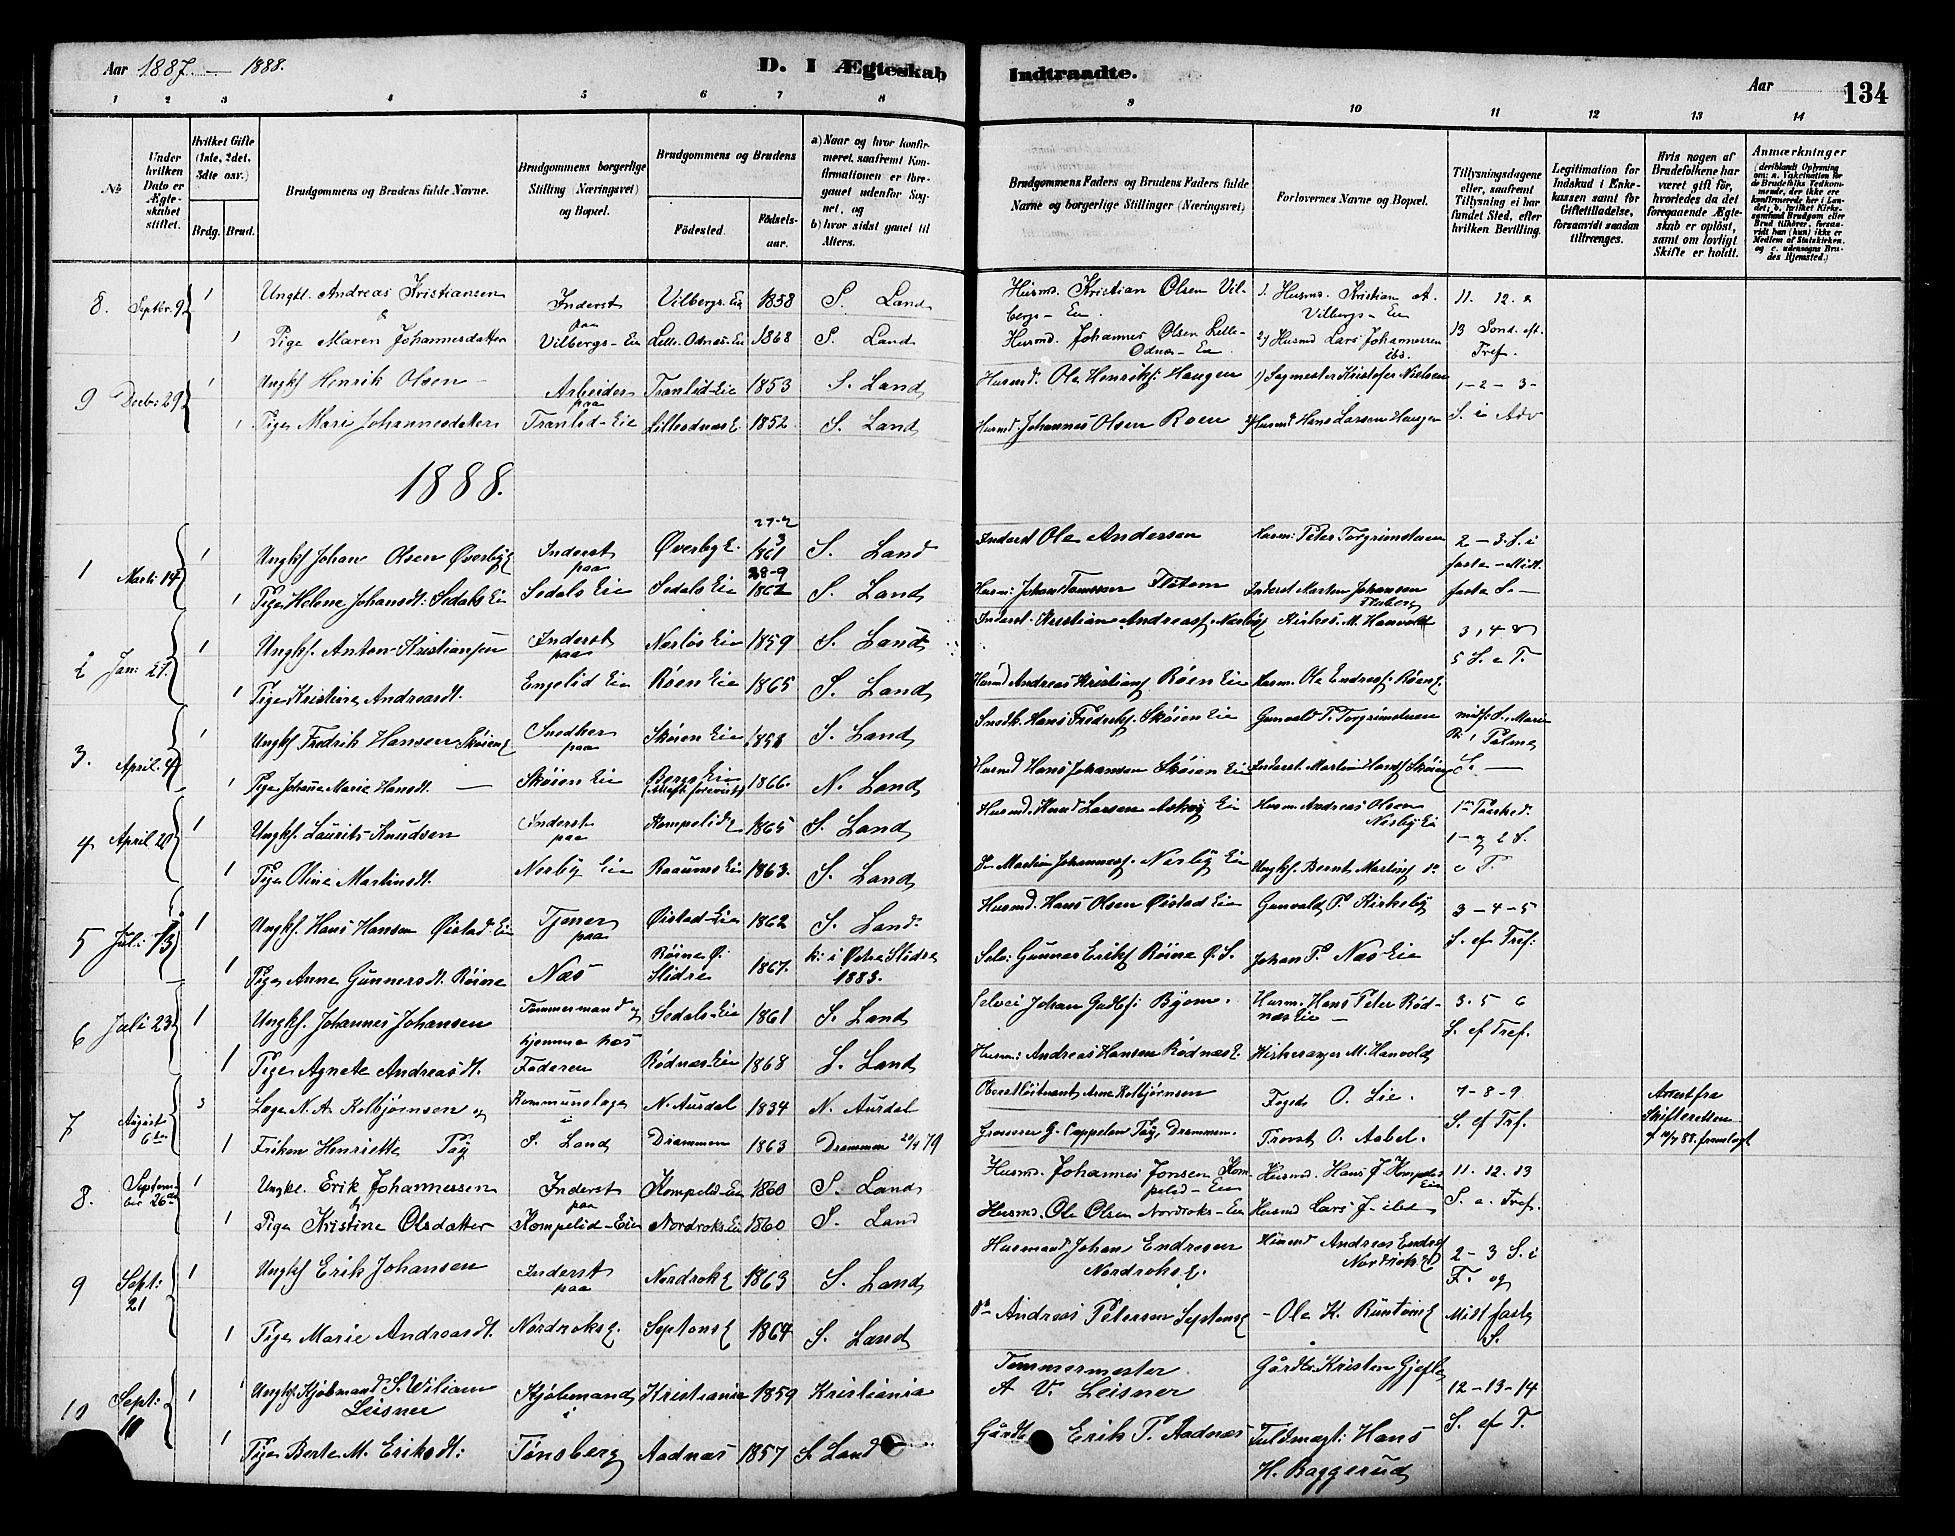 Aar 1887. — 1888.
D. I Ægteskab Indtraadte.
Aar
134
1 2 3 4 5 6 7 8 9 10 11 12 13 14
No
Under hvilken Dato er Ægteskabet stiftet.
Hvilket Gifte (1ste, 2det, 3die osv.)
Brdg. Brud.
Brudgommens og Brudens fulde Navne.
Brudgommens borgerlige Stilling (Næringsvei) og Bopæl.
Brudgommens og Brudens
Fødested.
Fødsels-aar.
a) Naar og hvor konfirmeret, saafremt Konfirmationen er foregaaet udenfor Sognet, og
b) hvor sidst gaaet til Alters.
Brudgommens Faders og Brudens Faders fulde Navne og borgerlige Stillinger (Næringsvei)
Forlovernes Navne og Bopæl.
Tillysningsdagene eller, saafremt Tillysning ei har fundet Sted, efter hvilken Bevilling.
Legitimation for Indskud i Enkekassen samt for Giftetilladelse, forsaavidt saadan tiltrænges.
Hvis nogen af Brudefolkene har været gift før, hvorledes da det foregaaende Ægteskab er opløst, samt om lovligt Skifte er holdt.
Anmærkninger
8. Septbr. 9 1 Ungkl. Andreas Kristiansen Inderst Vilbergs-Eie 1838 S. Land Husmd. Kristian Olsen Vilbergs-Eie. 1. Husmd. Kristian A. Vilbergs-Eie 11. 12. &
1 Pige Maren Johannesdatter paa Vilbergs-Eie Lille-Odnæs-Eie 1868 S. Land Husmd. Johannes Olsen Lille-Odnæs-Eie. 2) Husmd Lars Johannessen ibd. 13 Sond. eft. Tref.
9 Decbr 29 1 Ungkf Henrik Olsen Arbeider paa Tranlid-Eie 1853 S. Land Husmd. Ole Henriks: Haugen 1) Sagmester Kristofer Nielsen 1-2-3-
1 Pige Mari Johannesdatter Tranlid-Eie Lilleodnæs E. 1852. S. Land Husmd. Johannes Olsen Roen 2) Husmd Hans Larsen Haugen S. i Adv
1888.
1 Marti 14 1 Ungkf Johan Olsen Øverby E Inderst paa Øverby E. 27-2 1861 S. Land Inderst Ole Andersen Husm: Peter Torgrimsen 2-3. S. i faste-Midt
1 Pige Helene Johansdt: Sedals Eie Sedals Eie Sedals Eie 28-9 1862 S. Land Husm: Johan Inderst Morten Johansen faste S.
2 Jan: 27. 1 Ungkf. Anton Kristiansen Inderst paa 1859 S. Land Inderst. Kristian Andreas: Nerby Kirkes. M. Hanvold 3, 4 &
1 Pige Kristine Andreasdt. Engelid Eie Røen Eie 1865 S. Land Husmd Andreas Kristians Røen Eie Husm. Ole Endres: Røen E. 5 S. e T.
3. April. 4 1 Ungkf Fredrik Hansen Skøien E Snedker paa Skøien Eie 1858 S. Land Snedk. Hans Fredriks. Skøien Eie Gunvald P. Torgrimsen midf. S., Marie B., Palme
1 Pige Johanne Marie Hansdt. Skøien Eie Bergs Eie 1866. N. Land Husmd Hans Johansen Skøien Eie Inderst. Martin Hans: Skøien S.
4 April 20 1 Ungkf. Laurits Knudsen Inderst paa Kompelid E 1865 S. Land Husmd. Knud Larsen Askvig Eie Husm. Andreas Olsen Nerby Ei 1ste Paasked.
1 Pige Oline Martinsdt. Nerby Eie Raaums Eie 1863. S. Land Do Martin Johannes: Nerby Eie Ungkf. Bernt Martins do 1- og 2 S. e P.
5 Juli 13 1 Ungkf. Hans Hansen Øistad-Eie Tjener paa Øistad-Eie 1862 S. Land. Husmd. Hans Olsen Øistad Eie Gunvald P. Kirkeby 3-4-5
1 Pige Anne Gunnersdt. Røine Næs Røine Ø. Slidre 1867. k: i Østre Slidre 1883. Selv: Gunner Eriks Røine Ø. S. Johan P. Næs Eie S. ef Tref:
6 Juli 23 1 Ungkf. Johannes Johansen Tømmermand og Sedals-Eie 1861 S. Land Selvei Johan Gudbs: Byom. Husm. Hans Peter Rødnæs Eie 3. 5 6
1 Pige Agnete Andreasdt. hjemme hos Faderen Rødnæs-Eie 1868 S. Land Husm: Andreas Hansen Rødnæs E. Kirkesanger M. Hanvold S. ef Tref.
7 August 6te 3 Læge N. A. Kolbjørnsen og Kommunelæge i N. Aurdal 1834 N. Aurdal Oberstløitnant Arne Kolbjørnsen Foged O. Lie. 7-8-9 Attest fra Skifteretten
1 Frøken Henriette Pay S. Land Drammen 1863 Drammen 20/4 79 Grosserer G. Cappelen Pay, Drammen. Provst O. Aabel. S. ef Trf. af 10/7 88. fremlagt
8. September 26de 1 Ungkl. Erik Johannessen & Inderst paa Kompelid-Eie 1860 S. Land Husmd. Johannes Jonsen Kompelid-Eie Husmd. Hans J. Kompelid Eie 11. 12. 13
1 Pige Kristine Olsdatter Kompelid-Eie Nordroks-Eie 1860 S. Land Husmd. Ole Olsen Nordroks-Eie Husmd Lars J. ibd S. e. Tref.
9 Sept: 21 1 Ungkf Erik Johansen Inderst paa Nordroks E 1863 S. Land Husmand Johan Endresen Nordroks E. Husmd Andreas Endres Nordroks E 2-3 S. i F. og
1 Pige Marie Andreasdt. Nordroks E. Septons E 1864 S. Land do Andreas Petersen Septons E - Ole K. Runtom E Midt faste S.
10 Sept: 10 1 Ungkf. Kjøbmand S. Wiliam Leisner Kjøbmand i Kristiania 1859 Kristiania Tømmermester A V. Leisner Gårdbr. Kristen Gjefle 12-13-14
1 Pige Berte M. Eriksdt: Tønsberg Aadnæs 1857 S. Land Gårdbr Erik P. Aadnæs Fuldmægt: Hans H. Baggerud S. ef T.